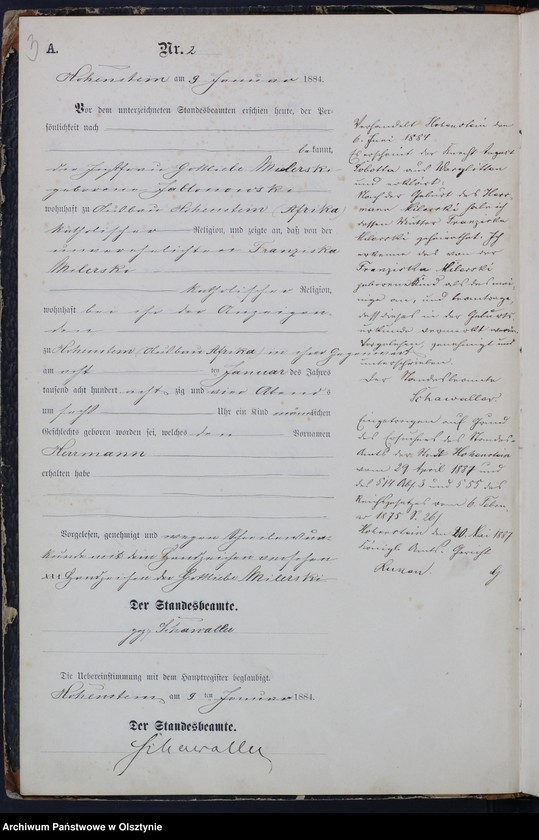 3
A.
Nr. 2
Hohenstein am 9 Januar 1884.
Vor dem unterzeichneten Standesbeamten erschien heute, der Per-
sönlichkeit nach
bekannt,
die Gottliebe Milerski
geborene Jablonowski
wohnhaft zu Hohenstein (Afrika)
katholischer Religion, und zeigte an, daß von der
unverehelichten Franziska
Milerski
katholischer Religion,
wohnhaft bei ihr der Anzeigen-
den
zu Hohenstein, Afrika in ihrer Gegenwart
am acht ten Januar des Jahres
tausend acht hundert acht zig und vier Abends
um sechs Uhr ein Kind männlichen
Geschlechts geboren worden sei, welches den Vornamen
Herrmann
erhalten habe
Vorgelesen, genehmigt und wegen Schreibensun-
kunde mit dem Handzeichen versehen
xxx Handzeichen der Gottliebe Milerski
Der Standesbeamte.
gez. Schawaller
Die Uebereinstimmung mit dem Hauptregister beglaubigt.
Hohenstein am 9 ten Januar 1884.
Der Standesbeamte.
Schawaller
Verhandelt Hohenstein den
6. Juni 1884
Es erscheint der Knecht August
Sobotta aus
und erklärt:
Nach der Geburt des Herr-
mann Milerski habe ich
dessen Mutter Franziska
Milerski geheirathet. Ich
erkenne das von der
Franziska Milerski
geborene Kind als das mei-
nige an, und beantrage,
daß dieses in der Geburts-
urkunde vermerkt werde
Vorgelesen, genehmigt und
unterschrieben.
Der Standesbeamte
Schawaller
Eingetragen auf Grund
des Ersuchens des Standes-
Amts der Stadt Hohenstein
vom 29 April 1887 und
des § 14 Abs. 3 und § 55 des
Reichsgesetzes vom 6. Febru-
ar 1875
Hohenstein den 20. Mai 1887
Königl. Amts-Gericht
Archiwum Państwowe w Olsztynie